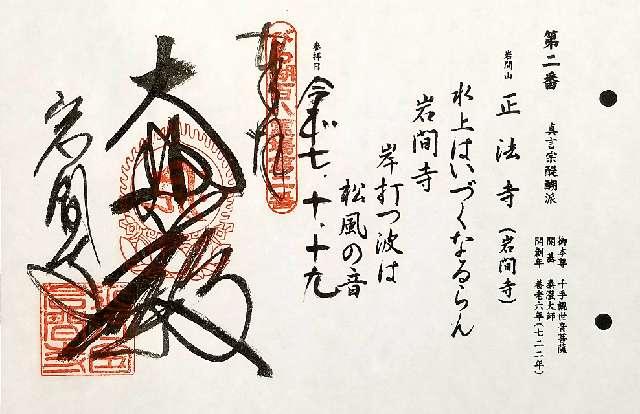 第二番
真言宗醍醐派
岩間山
正法寺(岩間寺)
御本尊 千手観世音菩薩
開基 泰澄大師
開創年 養老六年(七二二年)
水上はいづくなるらん
岩間寺
岸打つ波は
松風の音
参拝日
令和七、十、十九
びわ湖百八霊場第二番
奉拝
大悲殿
岩間寺